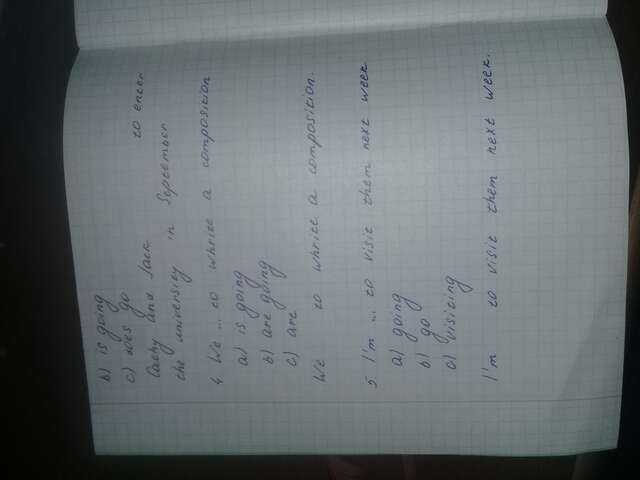 b) is going
c) does go
Cathy and Jack to enter
the university in September
4 We ... to whrite a composition
a) is going
b) are going
c) are
We to whrite a composition.
5 I'm ... to visit them next week
a) going
b) go
c) visiting
I'm to visit them next week.